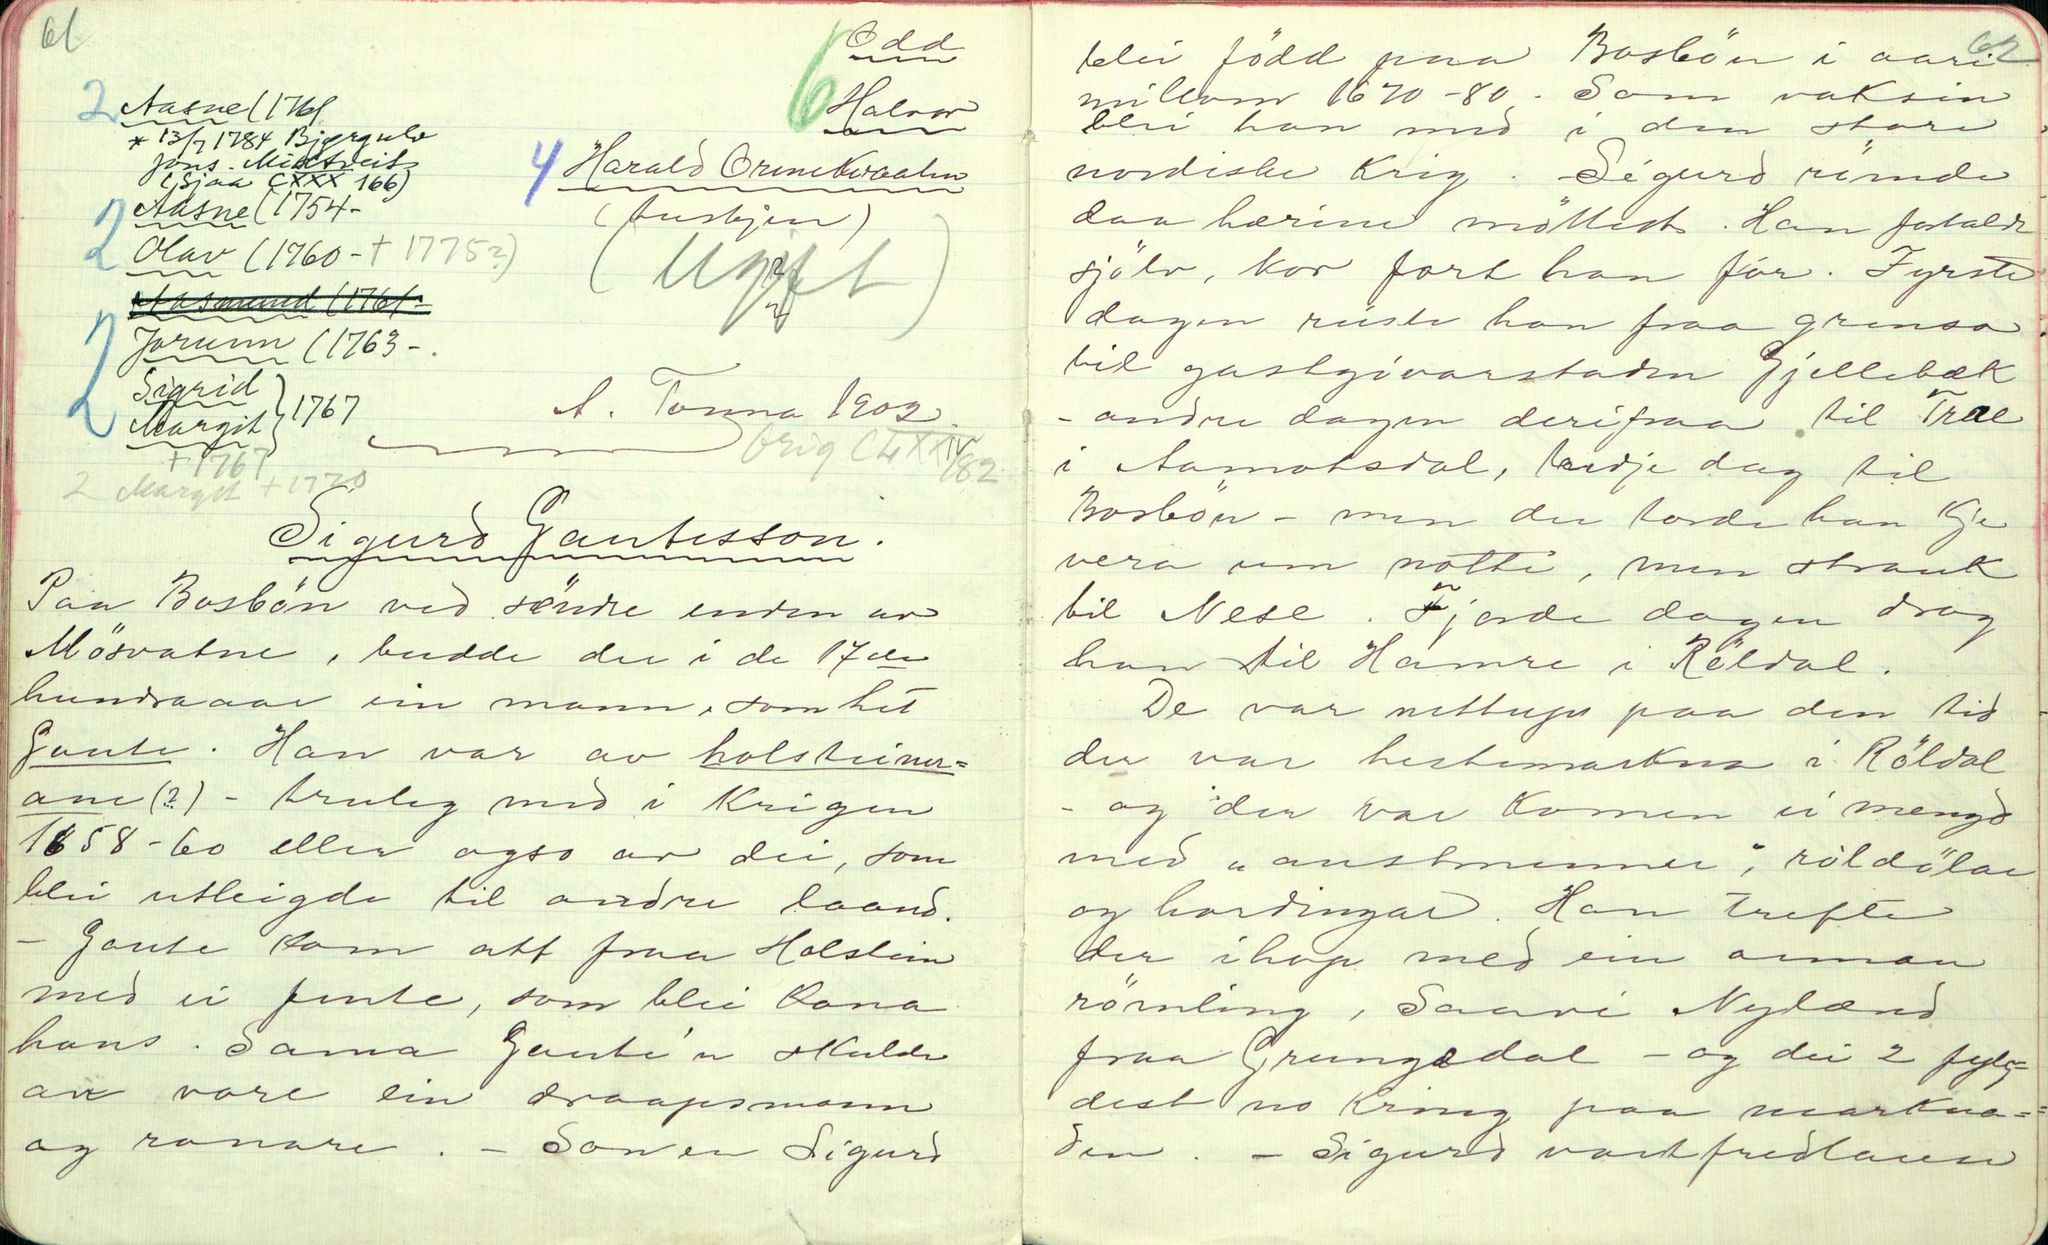 61
2 Aasne (1761
* 13/7 1784 Bjørgulv
Jons. Midtveit
(Sjaa CXXX 166)
2 Aasne (1754-
2 Olav (1760- + 1775?)
Aasmund (1761-
2 Jorunn (1763-.
2 Sigrid
Margit } 1767
+ 1767
2 Margit + 1770
6 Odd
Halvor
4 Harald
(tuskjen)
(Ugift)
A. Tonna 1902
Orig 182
Sigurd Gautesson.
Paa Bosbön ved söndre enden av
Mösvatne, budde dei i de 17de
hundraaar ein mann, som het
Gaute. Han var av holsteiner=
ane (?) - truleg med i Krigen
1658-60 eller ogso av dei, som
blei utleigde til andre laand.
- Gaute kom att fraa Holstein
med ei jente, som blei kona
hans. Sama Gaute'n skulde
ax vore ein draapsmann
og ranare. - Sonen Sigurd
62
blei född paa Bosbön i aari
millom 1670-80. Som vaksin
blei han med i den store
nordiske Krig. - Sigurd römde
daa hærine möttest. Han fortalde
sjölv, kor fort han for. Fyrste
dagen reiste han fraa grensa
til gastgivarstaden Gjellebæk
- andre dagen derifraa til Træe
i Aamotsdal, tridje dag til
Bosbön - men der torde han kje
vera um notti, men strauk
til Nese. Fjorde dagen drog
han til Hamre i Röldal.
De var nettupp paa den tid
der var hestemarkna i Röldal
- og der var komen ei mengd
med "austmenner", röldölar
og hardingar. Han trefte
der ihop med ein annan
römling, Saavi Nyland
fraa Grungedal - og dei 2 fylg=
dest no kring paa markna=
den. - Sigurd vart fredlaus